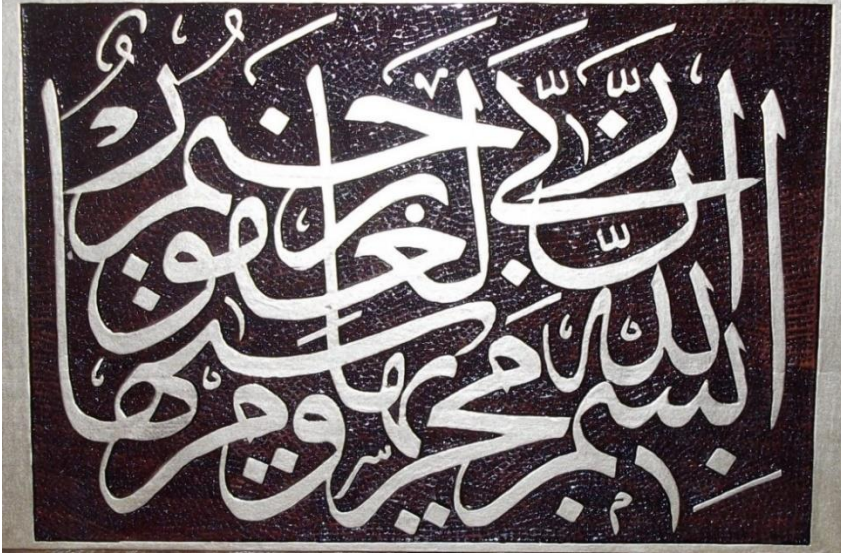 بِسْمِ اللّٰهِ مَجْرٰىهَا وَمُرْسٰىهَا
اِنَّ رَبِّي لَغَفُورٌ رَحِيمٌ